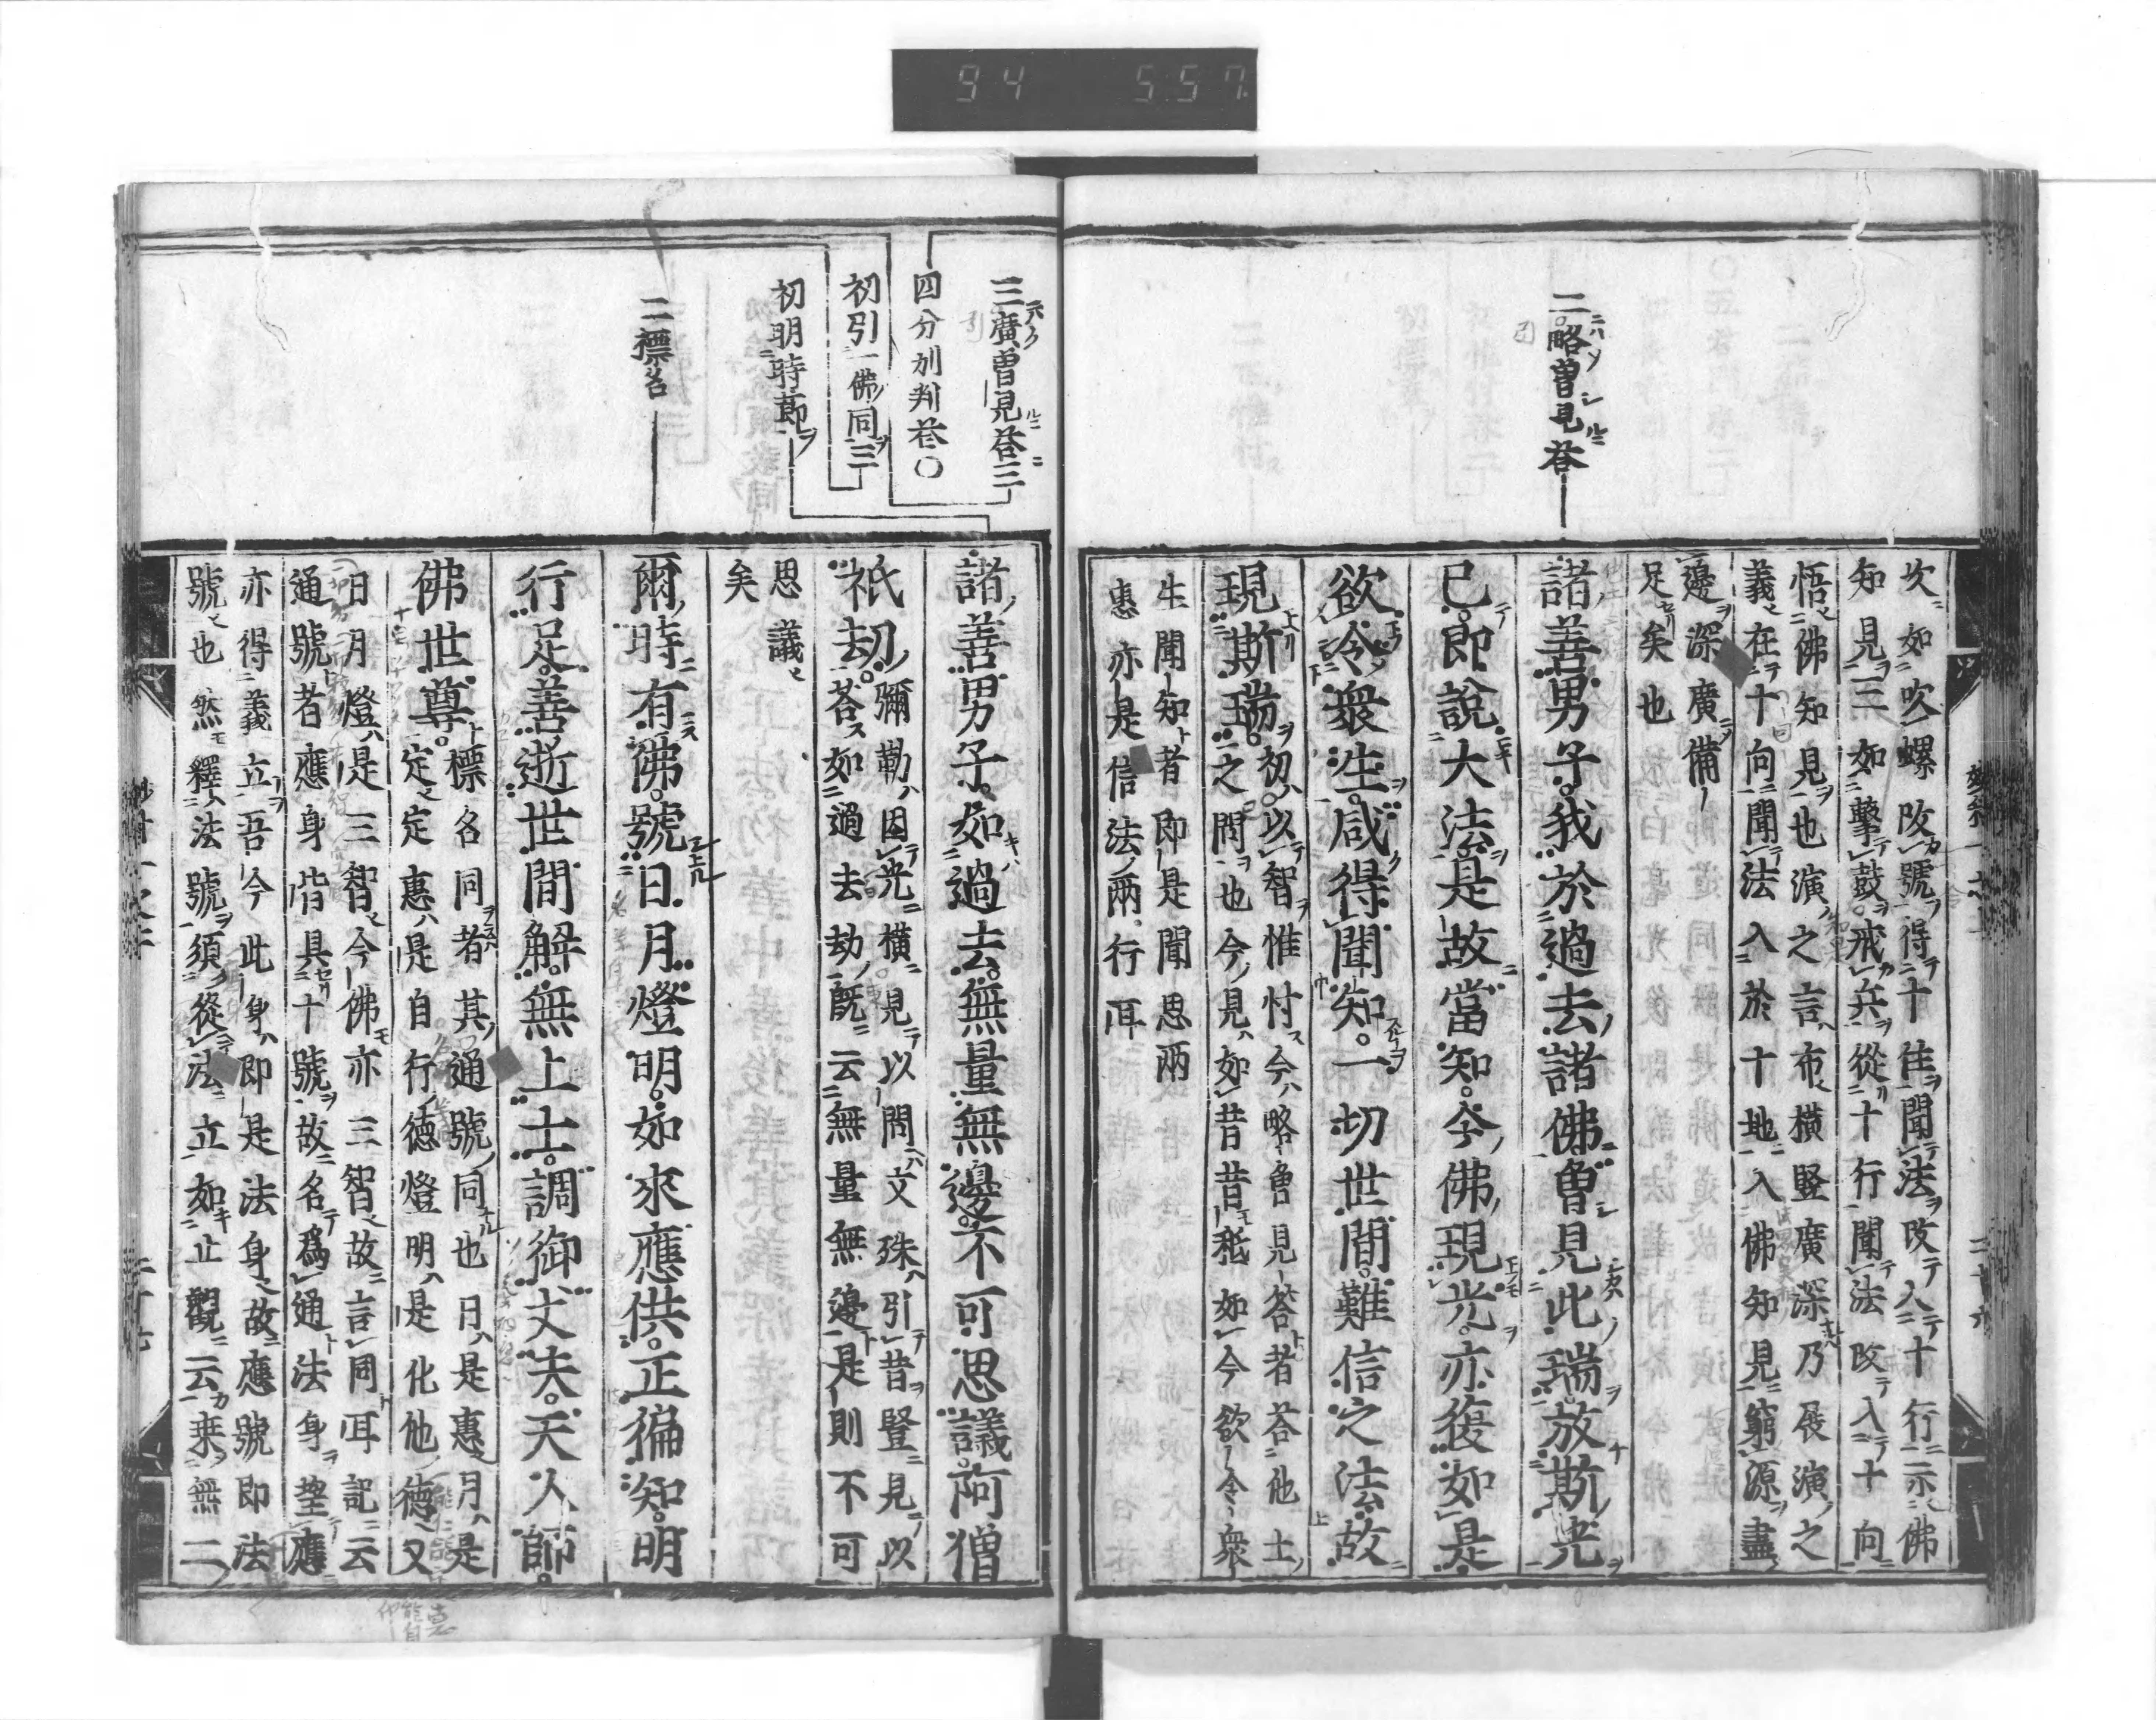 94 5:57
二略曽見荅
次如吹螺改號得十住聞法改入十行示佛
知見三如擊鼓戒兵從十行聞法改入十向
悟佛知見也演之言布橫竪廣深乃展演之
義在十向聞法入於十地入佛知見窮源盡
邊深廣備
足矣也
諸善男子我於過去諸佛曽見此瑞放斯光
已即說大法是故當知今佛現光亦復如是
欲令衆生咸得聞知一切世間難信之法故
現斯瑞
初以智惟忖今略曽見答者荅他土
之問也今見如昔昔秖如今欲令衆
生聞知者即是聞思兩
惠亦是信法兩行耳
三廣曽見荅三
四分別判荅〇
初引一佛同三
初明時節
二標名
諸善男子如過去無量無邊不可思議阿僧
祇劫
彌勒因光橫見以問文殊引昔豎見以
荅如過去劫既云無量無邊是則不可
思議
矣
爾時有佛號日月燈明如來應供正徧知明
行足善逝世間解無上士調御丈夫天人師
佛世尊
標名同者其通號同也日是惠月是
定定惠是自行德燈明是化他德又
日月燈是三智今佛亦三智故言同耳記云
通號者應身皆具十號故名爲通法身望應
亦得義立吾今此身即是法身故應號即法
號也然釋法號須從法立如止觀云乗無二